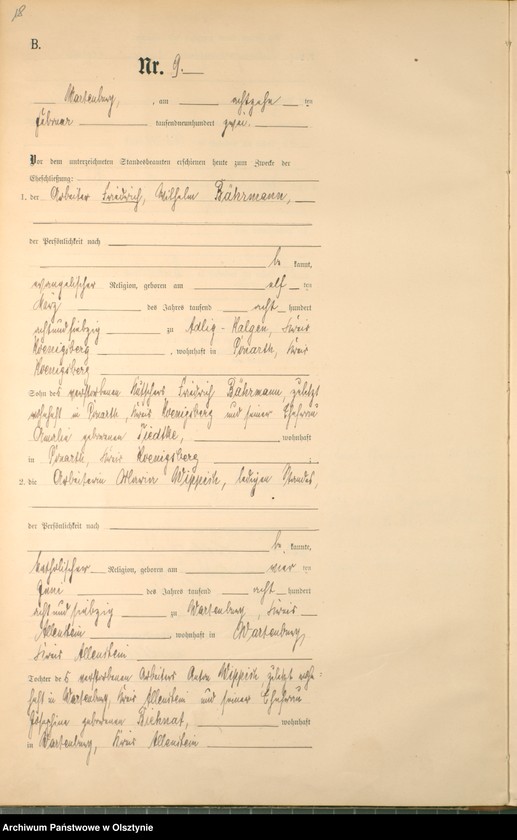 18
B.
Nr. 9.
Wartenburg, am achtzehn ten
Februar tausendneunhundert zwei.
Vor dem unterzeichneten Standesbeamten erschienen heute zum Zwecke der
Eheschließung:
1. der Arbeiter Friedrich, Wilhelm Bährmann,
der Persönlichkeit nach
be kannt,
evangelischer Religion, geboren am elf ten
März des Jahres tausend acht hundert
achtundsiebzig zu Adlig-Kalgen, Kreis
Koenigsberg, wohnhaft in Ponarth, Kreis
Koenigsberg
Sohn des verstorbenen Friedrich Bährmann, zuletzt
wohnhaft in Ponarth, Kreis Koenigsberg und seiner Ehefrau
Amalie geborenen Tiedtke, wohnhaft
in Ponarth, Kreis Koenigsberg
2. die Arbeiterin Maria Wippich, ledigen Standes,
der Persönlichkeit nach
be kannt,
katholischer Religion, geboren am vier ten
Juni des Jahres tausend acht hundert
acht und siebzig zu Wartenburg, Kreis
Allenstein, wohnhaft in Wartenburg,
Kreis Allenstein
Tochter des verstorbenen Arbeiters Anton Wippich, zuletzt wohn-
haft in Wartenburg, Kreis Allenstein und seiner Ehefrau
Josephine geborenen Bieknat, wohnhaft
in Wartenburg, Kreis Allenstein
Archiwum Państwowe w Olsztynie